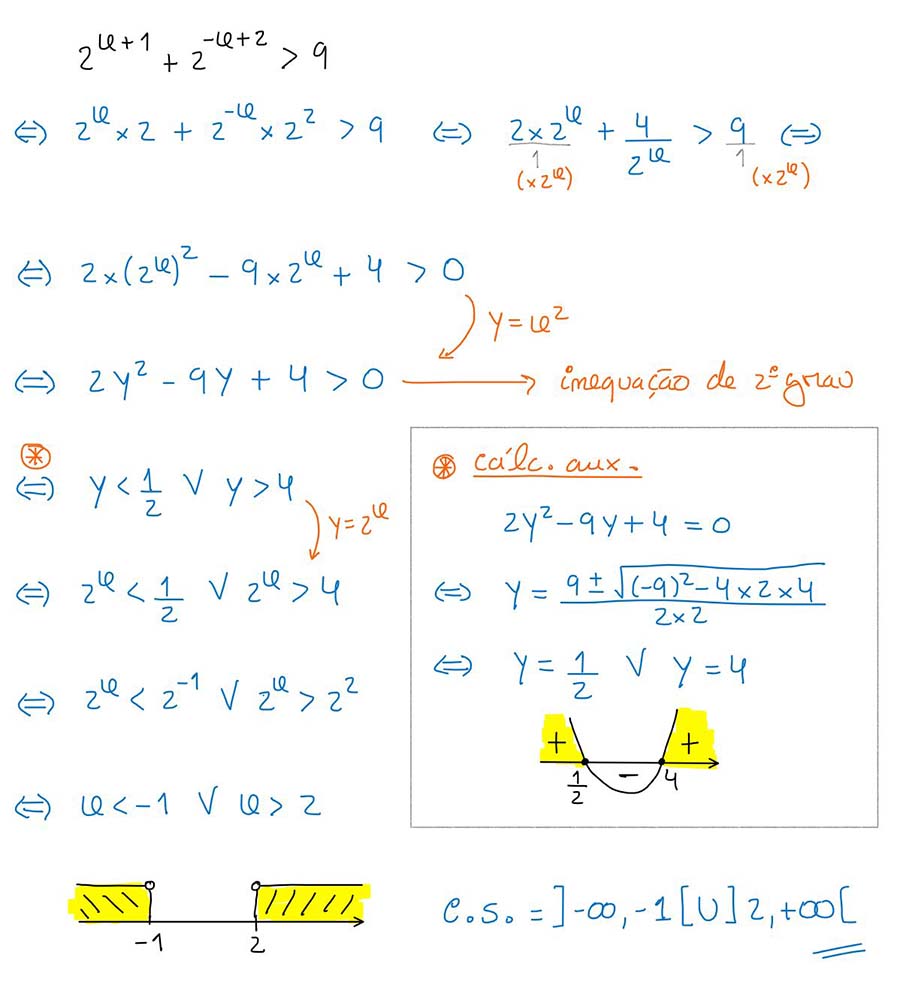 2^{x+1} + 2^{-x+2} > 9
⇔ 2^x × 2 + 2^{-x} × 2^2 > 9 ⇔ 2×2^x/1 + 4/2^x > 9/1 ⇔
(×2^x) (×2^x)
⇔ 2×(2^x)^2 - 9×2^x + 4 > 0
y = x^2
⇔ 2y^2 - 9y + 4 > 0 → inequação de 2º grau
⊛
⇔ y < 1/2 ∨ y > 4
y = 2^x
⇔ 2^x < 1/2 ∨ 2^x > 4
⇔ 2^x < 2^{-1} ∨ 2^x > 2^2
⇔ x < -1 ∨ x > 2
⊛ cálc. aux.
2y^2 - 9y + 4 = 0
⇔ y = (9 ± √((-9)^2 - 4×2×4))/(2×2)
⇔ y = 1/2 ∨ y = 4
+ - +
1/2 4
-1 2
C.S. = ]-∞, -1[ U ]2, +∞[